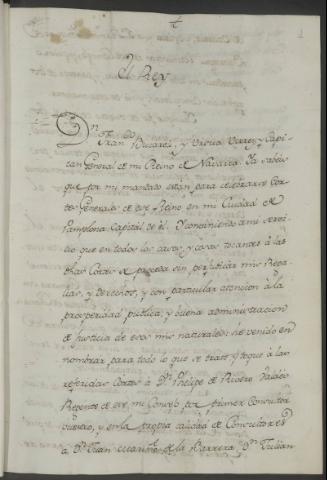 El Rey
Dn. Franco. Bucareli, y Ursua Virrey, y Capi-
tan General de mi Reino de Navarra. Ya sabeis
que por mi mandado están para celebrarse Cor-
tes Generales de ese Reino en mi Ciudad de
Pamplona Capital de él. Y conviniendo à mi servi-
cio que en todos los casos, y cosas tocantes à las
dhas Cortes se proceda sin perjudicar mis Rega-
lias, y derechos, y con particular atencion à la
prosperidad publica, y buena administracion
de Justicia de esos mis naturales: he venido en
nombrar, para todo lo que se trate y toque à las
referidas Cortes à Dn. Phelipe de Rivero Valdés
Regente de ese mi Consejo por primer Consultor
y en la propia calidad de Consultores
a Dn. Juan de la Barrera, Dn. Julian